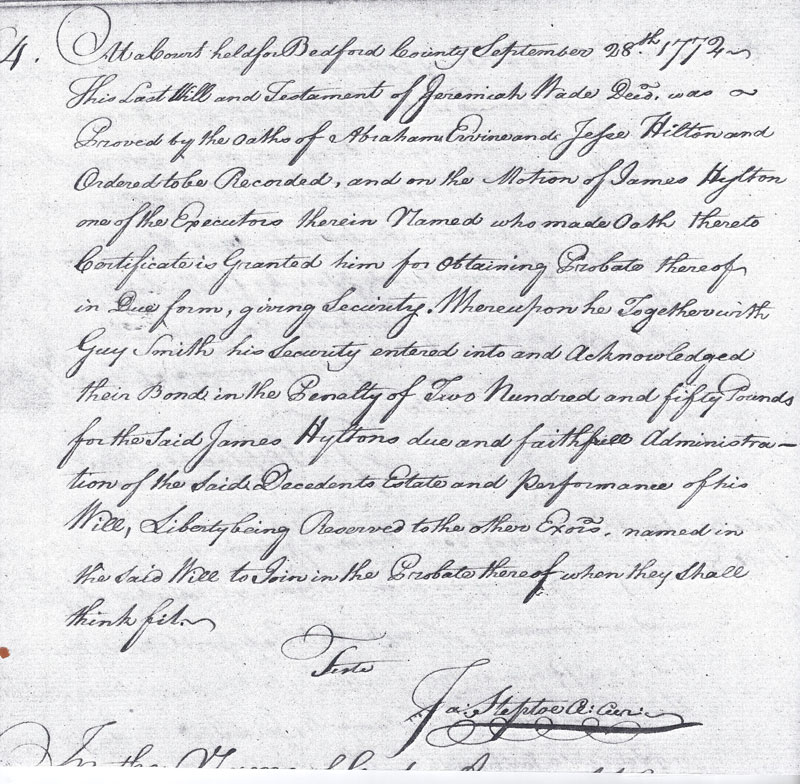 4. At a Court held for Bedford County September 28.th 1772
This Last Will and Testament of Jeremiah Wade Decd. was
Proved by the oaths of Abraham Ervine and Jesse Hilton and
Ordered to be Recorded, and on the Motion of James Hylton
one of the Executors therein Named who made Oath thereto
Certificate is Granted him for obtaining Probate thereof
in Due form, giving Security. Whereupon he Together with
Guy Smith his Security entered into and Acknowledged
their Bond in the Penalty of Two Hundred and fifty Pounds
for the Said James Hyltons due and faithfull Administra–
tion of the Said Decedents Estate and Performance of his
Will, Liberty being Reserved to the other Exors. named in
the said Will to Join in the Probate thereof when they shall
think fit.
Teste
Ja: Steptoe Cl: Cur:
In the Name